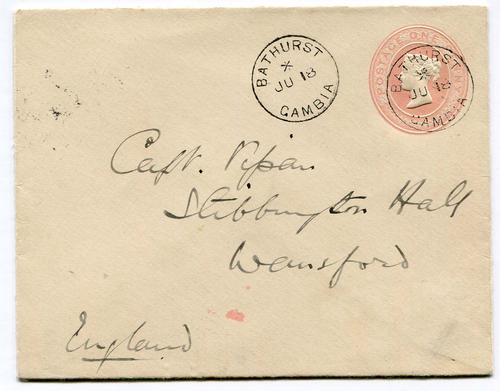 BATHURST
JU 18
GAMBIA
POSTAGE ONE PENNY
BATHURST
JU 18
GAMBIA
Capt. Vipan
Stibbington Hall
Wansford
England